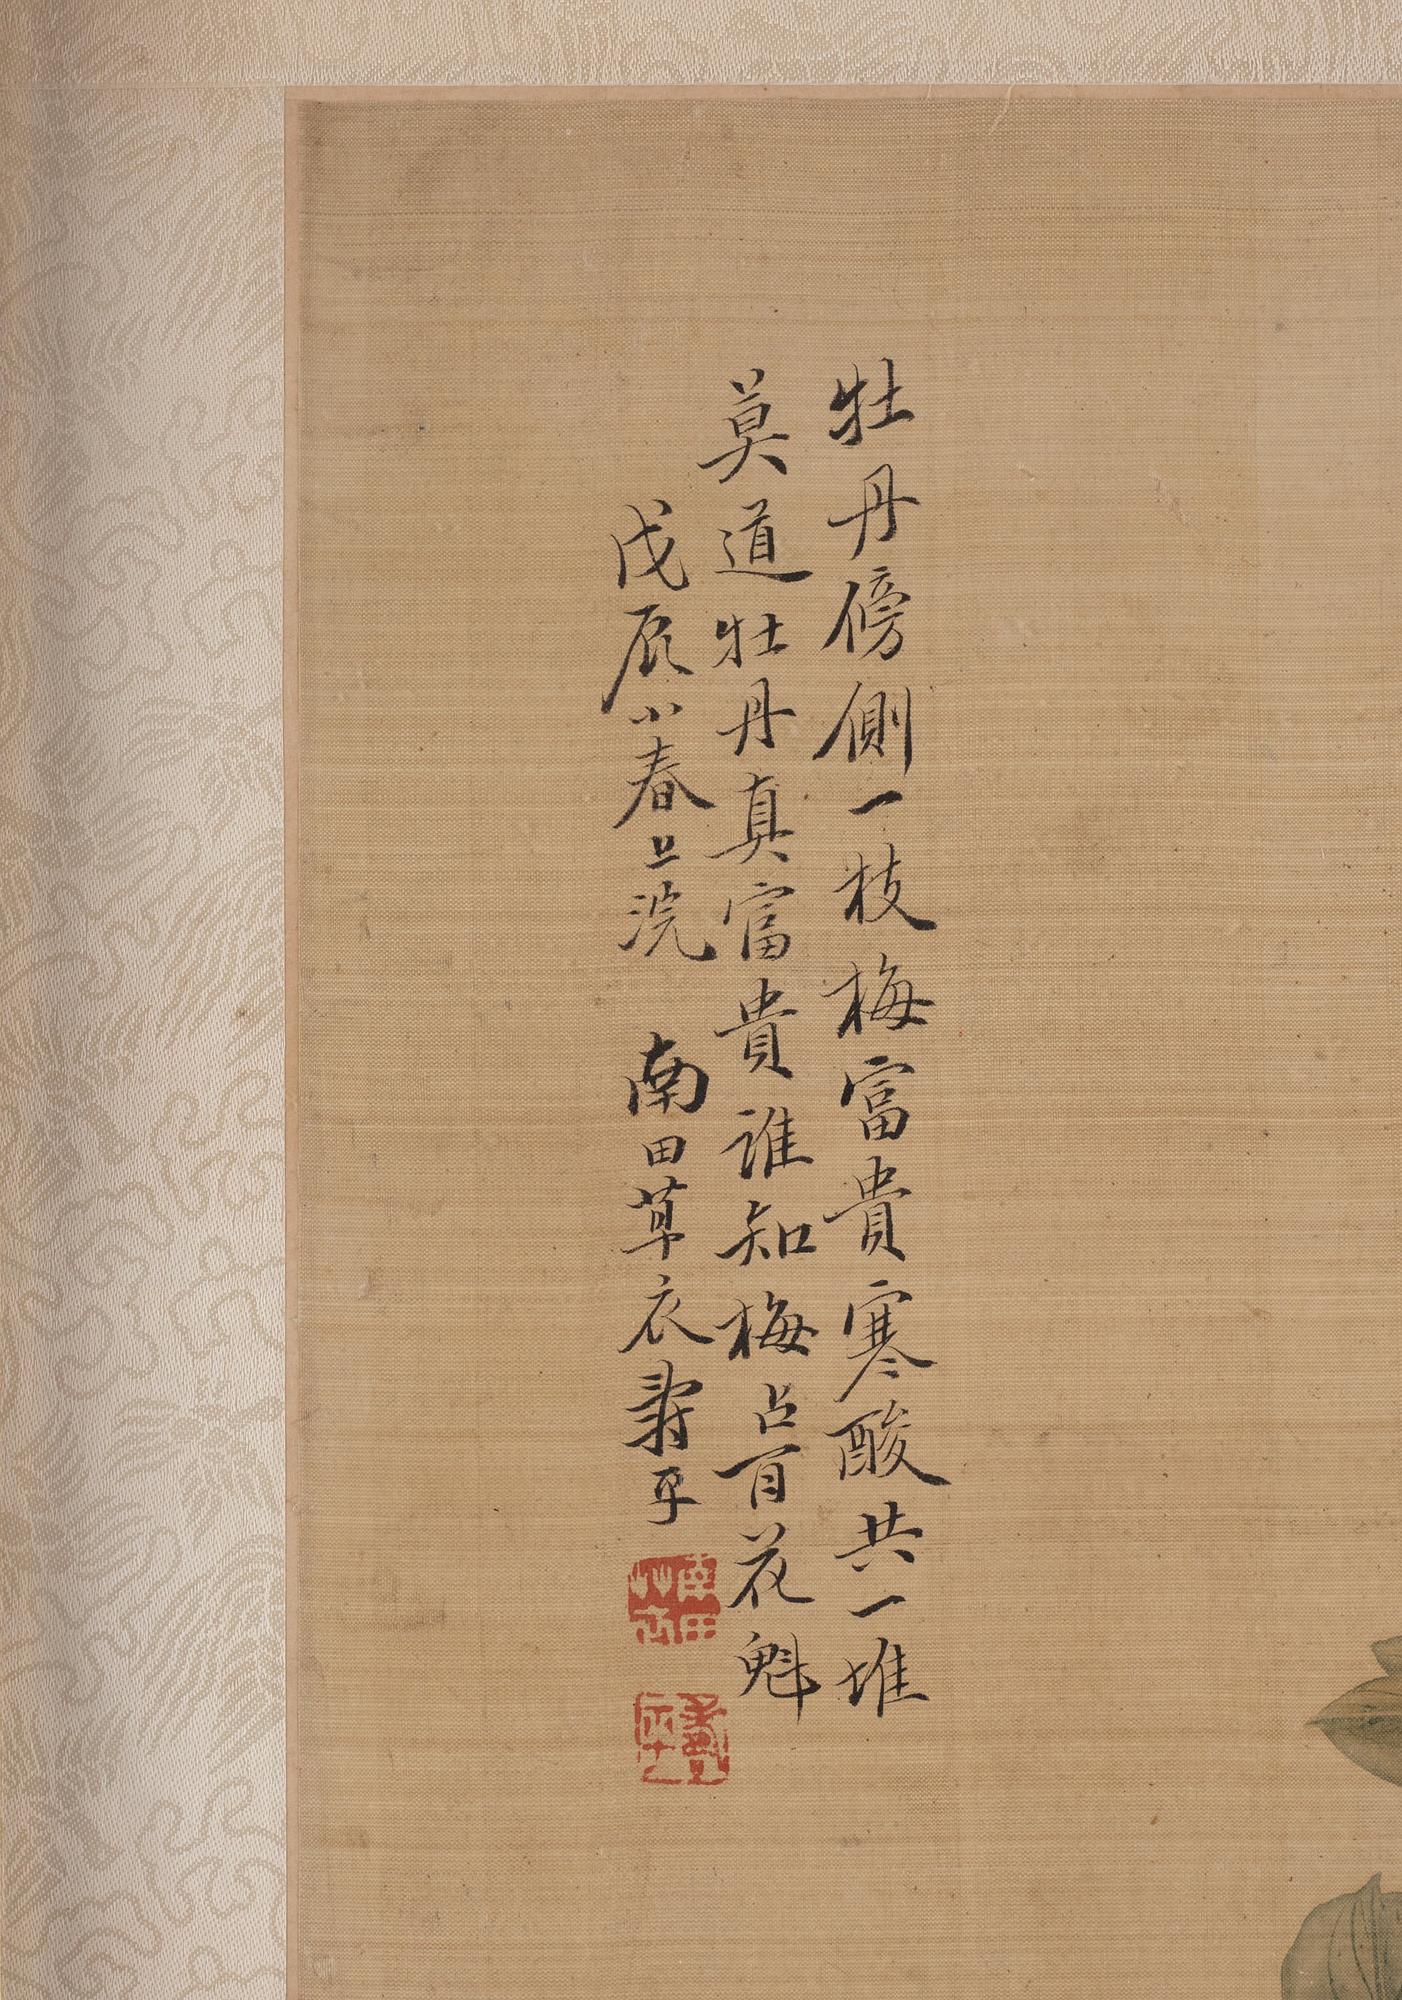 牡丹傍側一枝梅富貴寒酸共一堆
莫道牡丹真富貴誰知梅占百花魁
戊辰小春上浣 南田草衣壽平
南田草衣
壽平